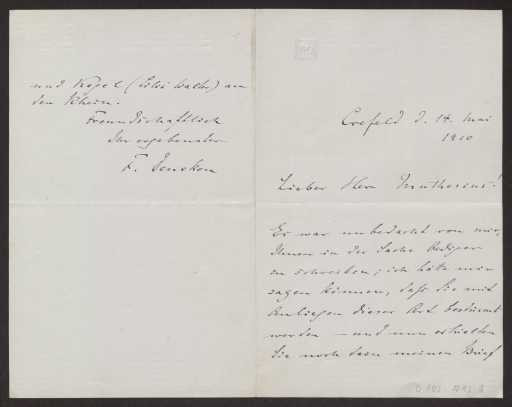 und Kogel (Felix Walter) an
den Rhein.
Freundschaftlich
Ihr ergebenster
F. Deneken
Crefeld d. 14. Mai
1910
Lieber Herr Muthesius!
Es war unbedacht von mir,
Ihnen in der Sache
zu schreiben; ich hätte mir
sagen können, daß Sie mit
Anliegen dieser Art bestürmt
werden – und nun erhielten
Sie noch dazu meinen Brief